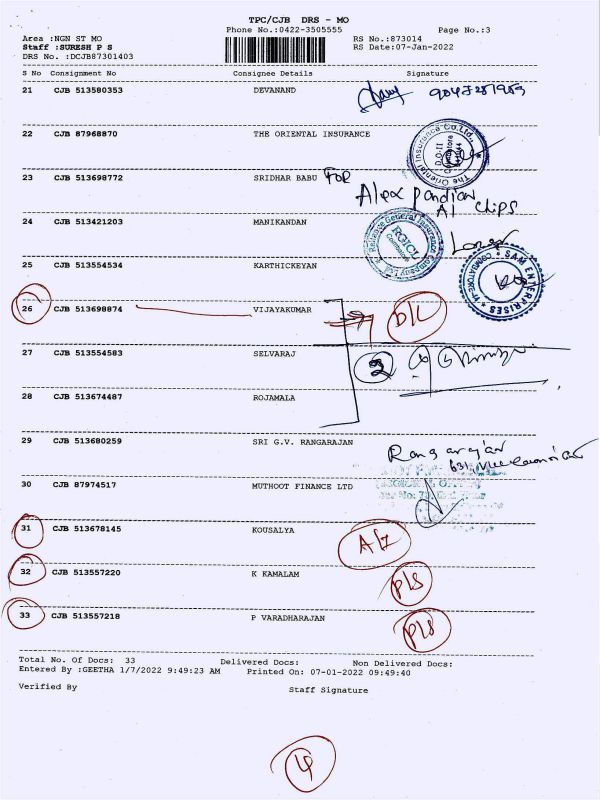 TPC/CJB DRS - MO
Phone No.:0422-3505555 Page No.:3
Area :NGN ST MO RS No.:873014
Staff :SURESH P S RS Date:07-Jan-2022
DRS No. :DCJB87301403
S No Consignment No Consignee Details Signature
21 CJB 513580353 DEVANAND
22 CJB 87968870 THE ORIENTAL INSURANCE
The Oriental Insurance Co.Ltd.,
23 CJB 513698772 SRIDHAR BABU FOR
Alex pandian
A1 chips
24 CJB 513421203 MANIKANDAN
Reliance General Insurance Company Ltd
RGICL
25 CJB 513554534 KARTHICKEYAN
SAM ENTERPRISES
COIMBATORE-44
26 CJB 513698874 VIJAYAKUMAR D/L
27 CJB 513554583 SELVARAJ 3
28 CJB 513674487 ROJAMALA
29 CJB 513680259 SRI G.V. RANGARAJAN
Rangarajan
30 CJB 87974517 MUTHOOT FINANCE LTD
31 CJB 513678145 KOUSALYA A/I
32 CJB 513557220 K KAMALAM P/S
33 CJB 513557218 P VARADHARAJAN P/S
Total No. Of Docs: 33 Delivered Docs: Non Delivered Docs:
Entered By :GEETHA 1/7/2022 9:49:23 AM Printed On: 07-01-2022 09:49:40
Verified By Staff Signature
4